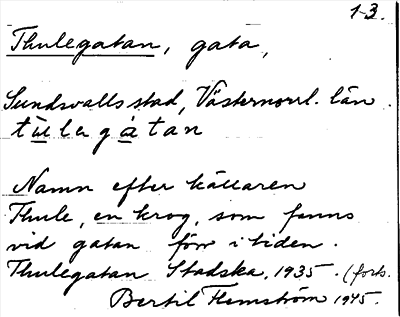 1-3.
Thulegatan, gata,
Sundsvalls stad, Västernorrl. län.
tù̱legá̱tan
Namn efter källaren
Thule, en krog, som fanns
vid gatan förr i tiden.
Thulegatan Stadska. 1935. (forts.
Bertil Flemström 1945.